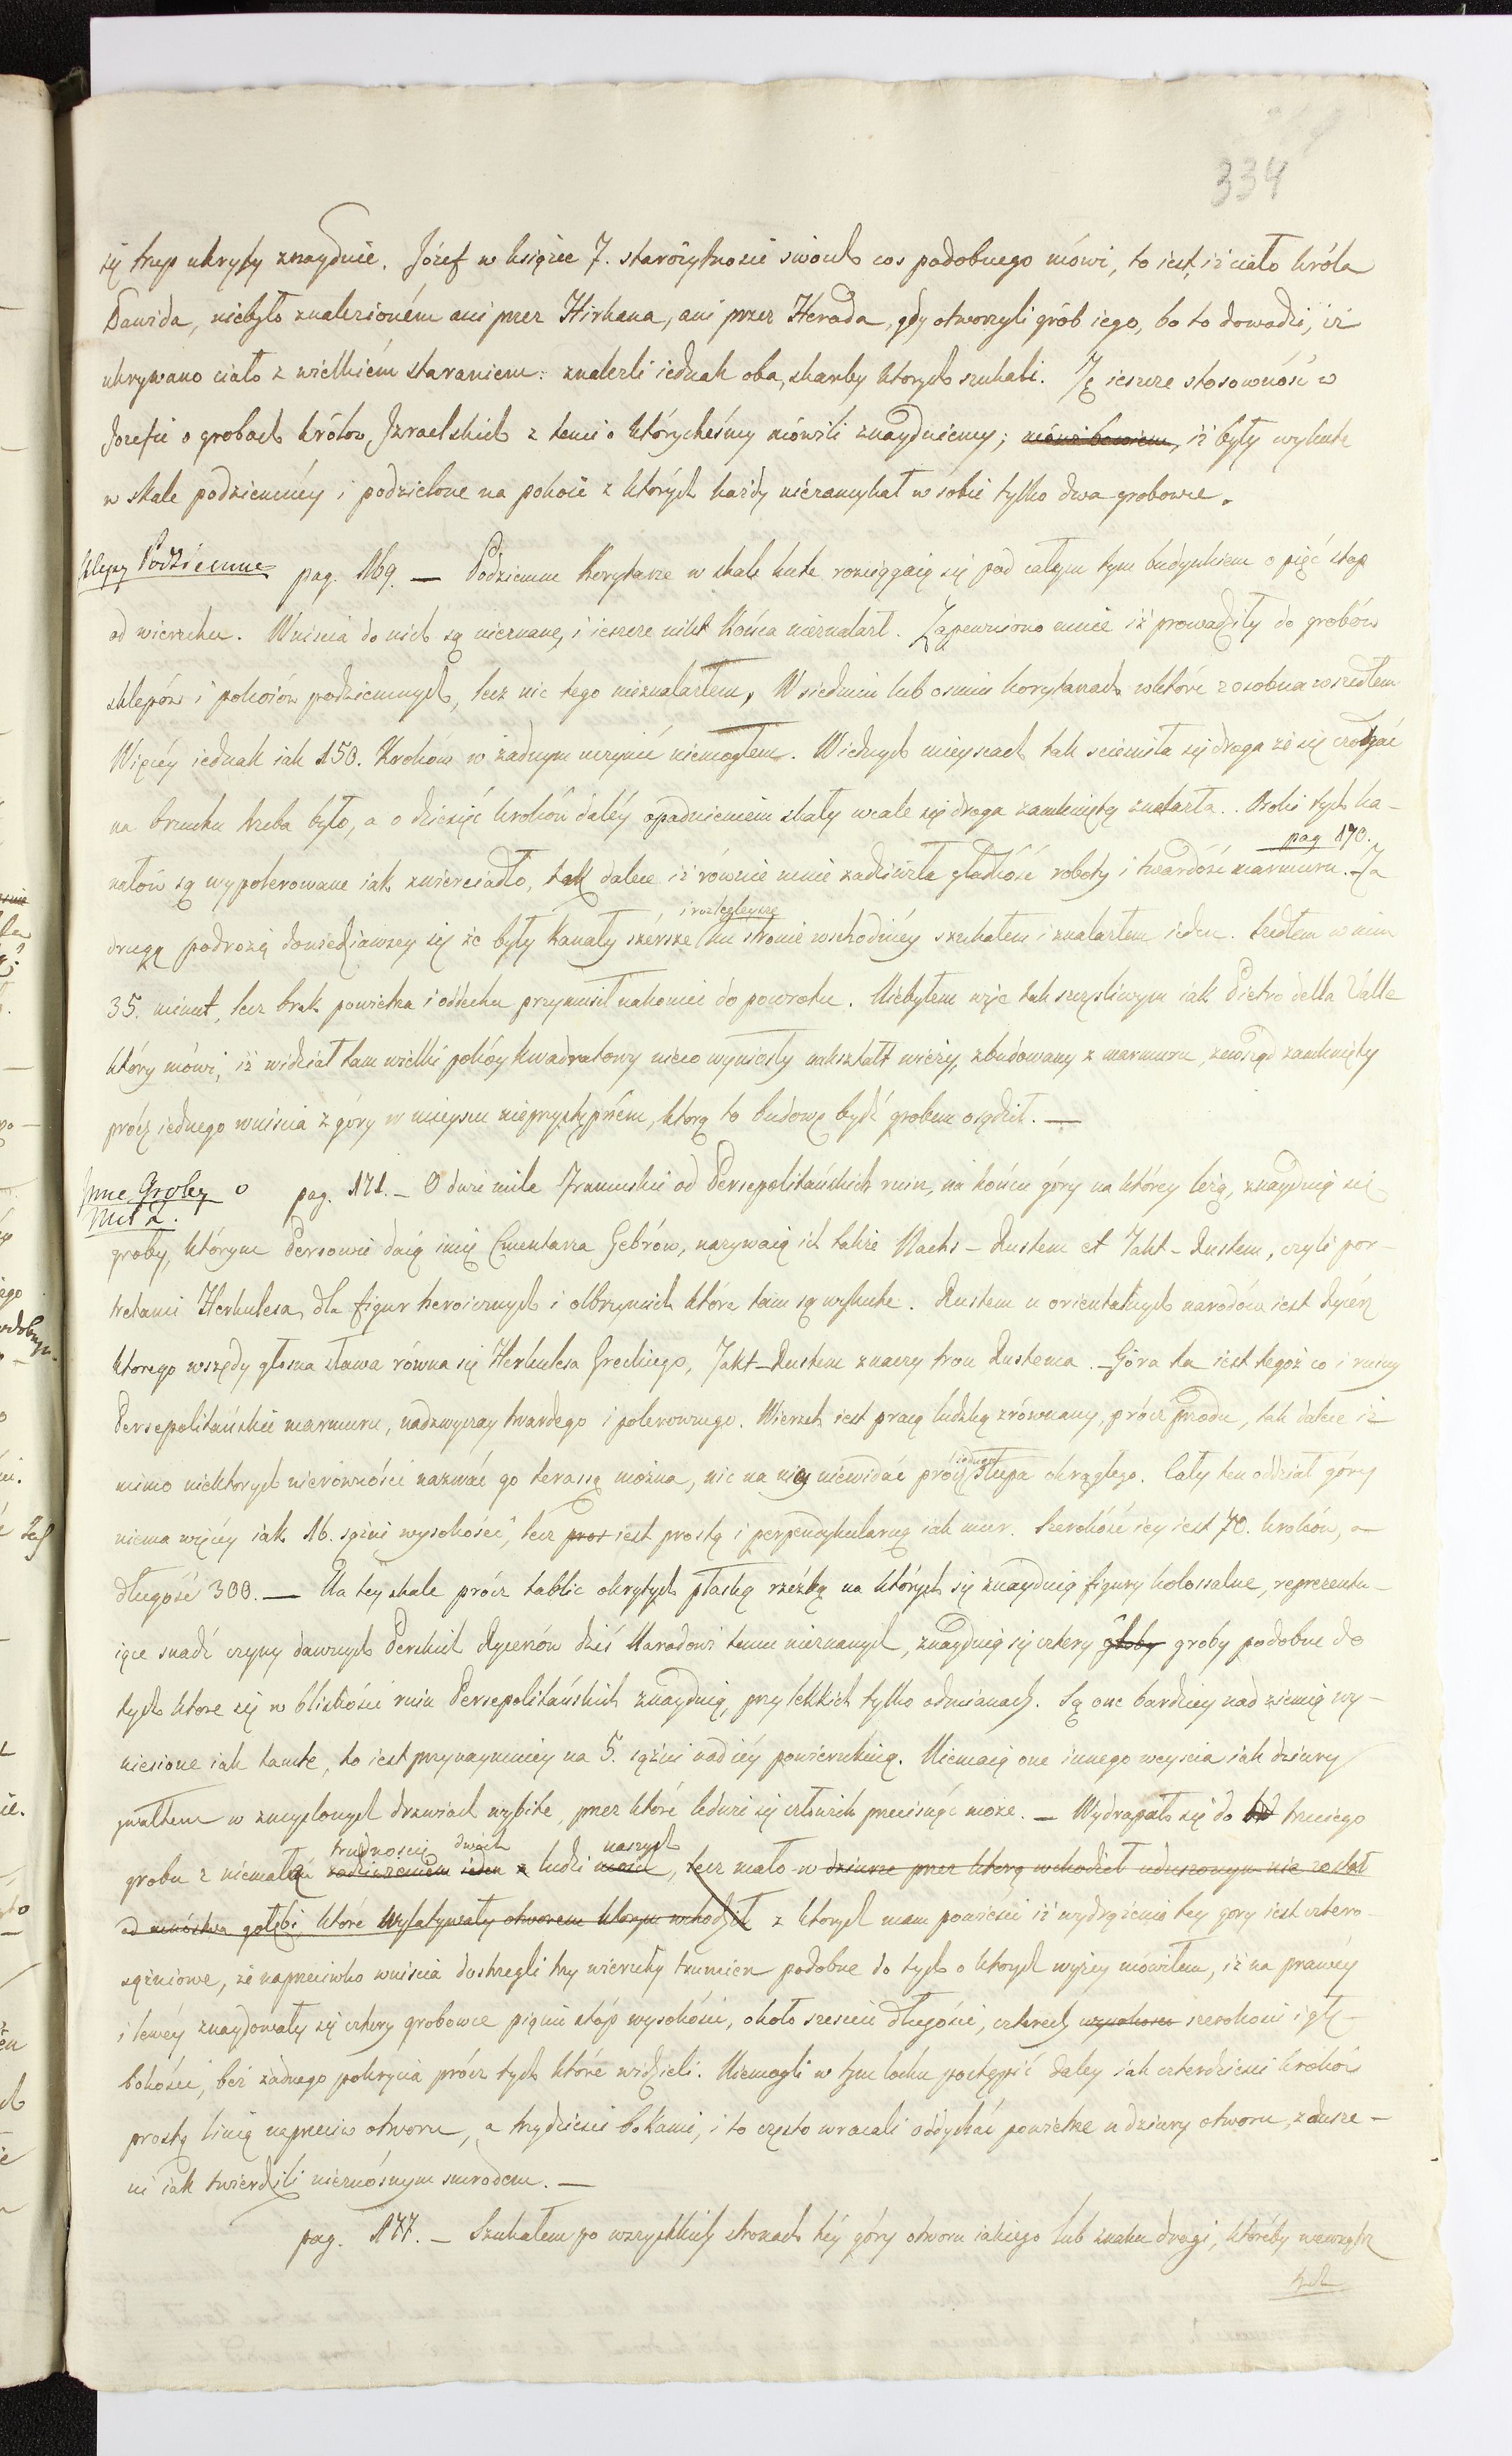 334
się trup ukryty znayduie. Józef w księdze 7. starożytności swoich cos podobnego mówi, to iest, iż ciało króla
Dawida, niebyło znalezioném ani przez Hirkana, ani przez Heroda, gdy otworzyli grób iego, bo to dowodzi, iż
ukrywano ciało z wielkiém staraniem: znalezli iednak oba, skarby ktorych szukali. Tę ieszcze stosowność w
Jozefie o grobach królow, Izraelskich z temi o którycheśmy mówili znayduiemy; mówi bowiem, iż były wykute
w skale podziemnéy i podzielone na pokoie z których każdy niezamykał w sobie tylko dwa grobowce.
Sklepy Podziemne
pag. 169. — Podziemne Korytarze w skale kute rozciągaią się pod całym tym budynkiem o pięć stop
od wierzchu. Wniscia do nich są nieznane, i ieszcze nikt Końca nieznalazł. Zapewniono mnie iż prowadziły do grobów
sklepów i pokoiów podziemnych, lecz nic tego nieznalazłem, W siedmiu lub osmiu korytarzach wktóre zosobna wszedłem
Więcéy iednak iak 150. Kroków w żadnym uczynić niemogłem. Wiednych mieyscach tak scieśniła się droga że się czołgać
na brzuchu trzeba było, a o dziesięć kroków daléy opadnieniem skały wcale się droga zamkniętą znalazła. Boki tych ka-
pag 170.
nałów są wypolerowane iak zwierciadło, tak dalece iż równie mnie zadziwiła gładkość roboty i twardość marmuru. Za
i rozlegleysze
drugą podrożą dowiedziawszy się że były Kanały szérsze ku stronie wschodniéy szukałem i znalazłem ieden. Szedłem w nim
35. minut, lecz brak powietrza i oddechu przymusił nakoniec do powrotu. Niebyłem więc tak szczęsliwym iak Pietro della Valle
który mówi, iż widział tam wielki pokóy kwadratowy nieco wyniosły nakształt wieży, zbudowany z marmuru, zewsząd zamknięty
prócz iednego wniscia z góry w mieyscu nieprzystępném, którą to budowę bydź grobem osądził. —
Inne Groby o
Mil 2.
pag. 171. — O dwie mile Francuskie od Persepolitańskich ruin, na końcu góry na którey leżą, znayduią się
groby, którym Persowie daią imię Cmentarza Gebrów, nazywaią ich także Nachs-Rustem et Takt-Rustem, czyli por-
tretami Herkulesa, dla figur heroicznych i olbrzymich które tam są wykute. Rustem u orientalnych narodów iest Rycérz
ktorego wszędy głosna sława równa się Herkulesa Greckiego, Takt-Rustem znaczy tron Rustema. — Góra ta iest tegoż co i ruiny
Persepolitańskie marmuru, nadzwyczay twardego i polerownego. Wierzch iest pracą ludzką zrównany, prócz przodu, tak dalece iż
mimo niektorych nierówności nazwać go terassą można, nic na niey niewidać prócz słupa okrągłego. Cały ten oddział góry
niema więcéy iak 16. sążni wysokości, lecz pros iest prostą i perpendykularną iak mur. Szerokość iey iest 70. kroków, a
długość 300. — Na tey skale prócz tablic okrytych płaską rzeźbą na których się znayduią figury kolossalne, reprezentu-
iące snadź czyny dawnych Perskich Rycerzów dziś Narodowi temu nieznanych, znayduią się cztery głoby groby podobne do
tych ktore się w bliskości ruin Persepolitańskich znayduią, przy lekkich tylko odmianach. Są one bardziey nad ziemią wy-
niesione iak tamte, to iest przynaymniey na 5. sążni nad iéy powierzchnią. Niemaią one innego weyscia iak dziury
gwałtem w zmyslonych drzwiach wybite, przez które ledwie się człowiek przecisnąć może. — Wydrapało się do trzeciego
trudnoscią dwóch naszych
grobu z niemałą zadziwieniem ieden z ludzi moich, lecz mało w dziurze przez którą wchodził uduszonym nie został
od mnóstwa gołębi, które wylatywały otworem ktorym wchodził z ktorych mam powieści iż wydrążenie tey gory iest cztero-
sążniowe, że naprzeciwko wniscia dostrzegli trzy wierzchy trumien podobne do tych o ktorych wyżey mówiłem, iż na prawéy
i lewéy znaydowały się cztery grobowce pięciu stóp wysokości, około szesciu długości, czterech wysokosci szerokosci i głę-
bokości, bez żadnego pokrycia prócz tych które widzieli. Niemogli w tym lochu postąpić daley iak czterdziesci kroków
prostą linią naprzeciw otworu, a trzydziesci bokami, i to często wracali oddychać powietrze u dziury otworu, zdusze-
ni iak twierdzili nieznośnym smrodem. —
pag. 177. — Szukałem po wszystkich stronach téy góry otworu iakiego lub znaku drogi, któréby wewnątrz